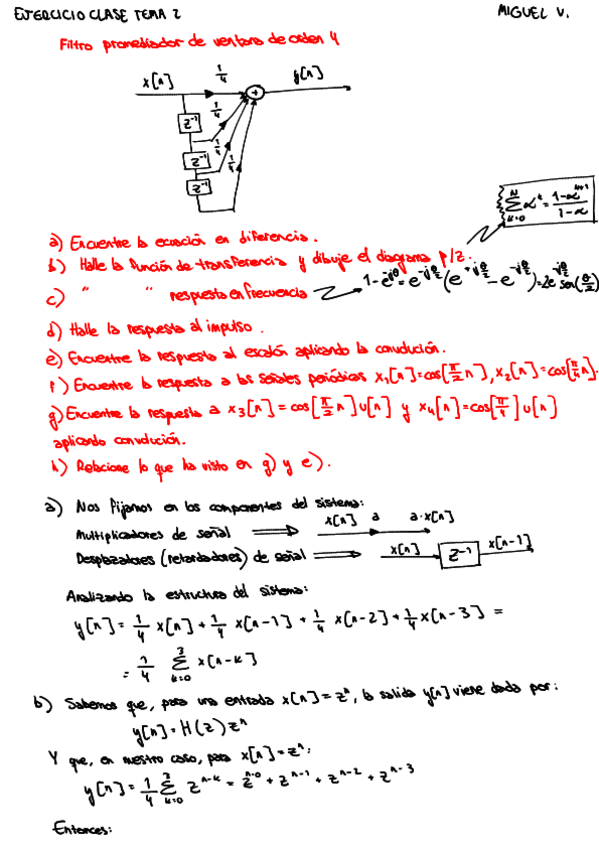 EJERCICIO CLASE TEMA 2
MIGUEL V.
Filtro promediador de ventana de orden 4
x[n] 1/4 y[n]
+
1/4
z⁻¹
1/4
z⁻¹
1/4
z⁻¹
∑_{k=0}^{N} α^k = (1-α^{N+1})/(1-α)
a) Encuentre la ecuación en diferencia.
b) Halle la función de transferencia y dibuje el diagrama p/z.
c) " " respuesta en frecuencia → 1-e^{-jθ} = e^{-jθ/2}(e^{+jθ/2} - e^{-jθ/2}) = 2e^{-jθ/2} sen(θ/2)
d) Halle la respuesta al impulso.
e) Encuentre la respuesta al escalón aplicando la convolución.
f) Encuentre la respuesta a las señales periódicas x₁[n]=cos[π/2 n], x₂[n]=cos[π/4 n].
g) Encuentre la respuesta a x₃[n] = cos[π/2 n]u[n] y x₄[n]=cos[π/4]u[n]
aplicando convolución.
h) Relacione lo que ha visto en g) y e).
a) Nos fijamos en los componentes del sistema:
Multiplicadores de señal ⟹ x[n] a a·x[n]
Desplazadores (retardadores) de señal ⟹ x[n] z⁻¹ x[n-1]
Analizando la estructura del sistema:
y[n] = 1/4 x[n] + 1/4 x[n-1] + 1/4 x[n-2] + 1/4 x[n-3] =
= 1/4 ∑_{k=0}^{3} x[n-k]
b) Sabemos que, para una entrada x[n]=zⁿ, la salida y[n] viene dada por:
y[n] = H(z)zⁿ
Y que, en nuestro caso, para x[n]=zⁿ:
y[n] = 1/4 ∑_{k=0}^{3} z^{n-k} = z^{n-0} + z^{n-1} + z^{n-2} + z^{n-3}
Entonces: